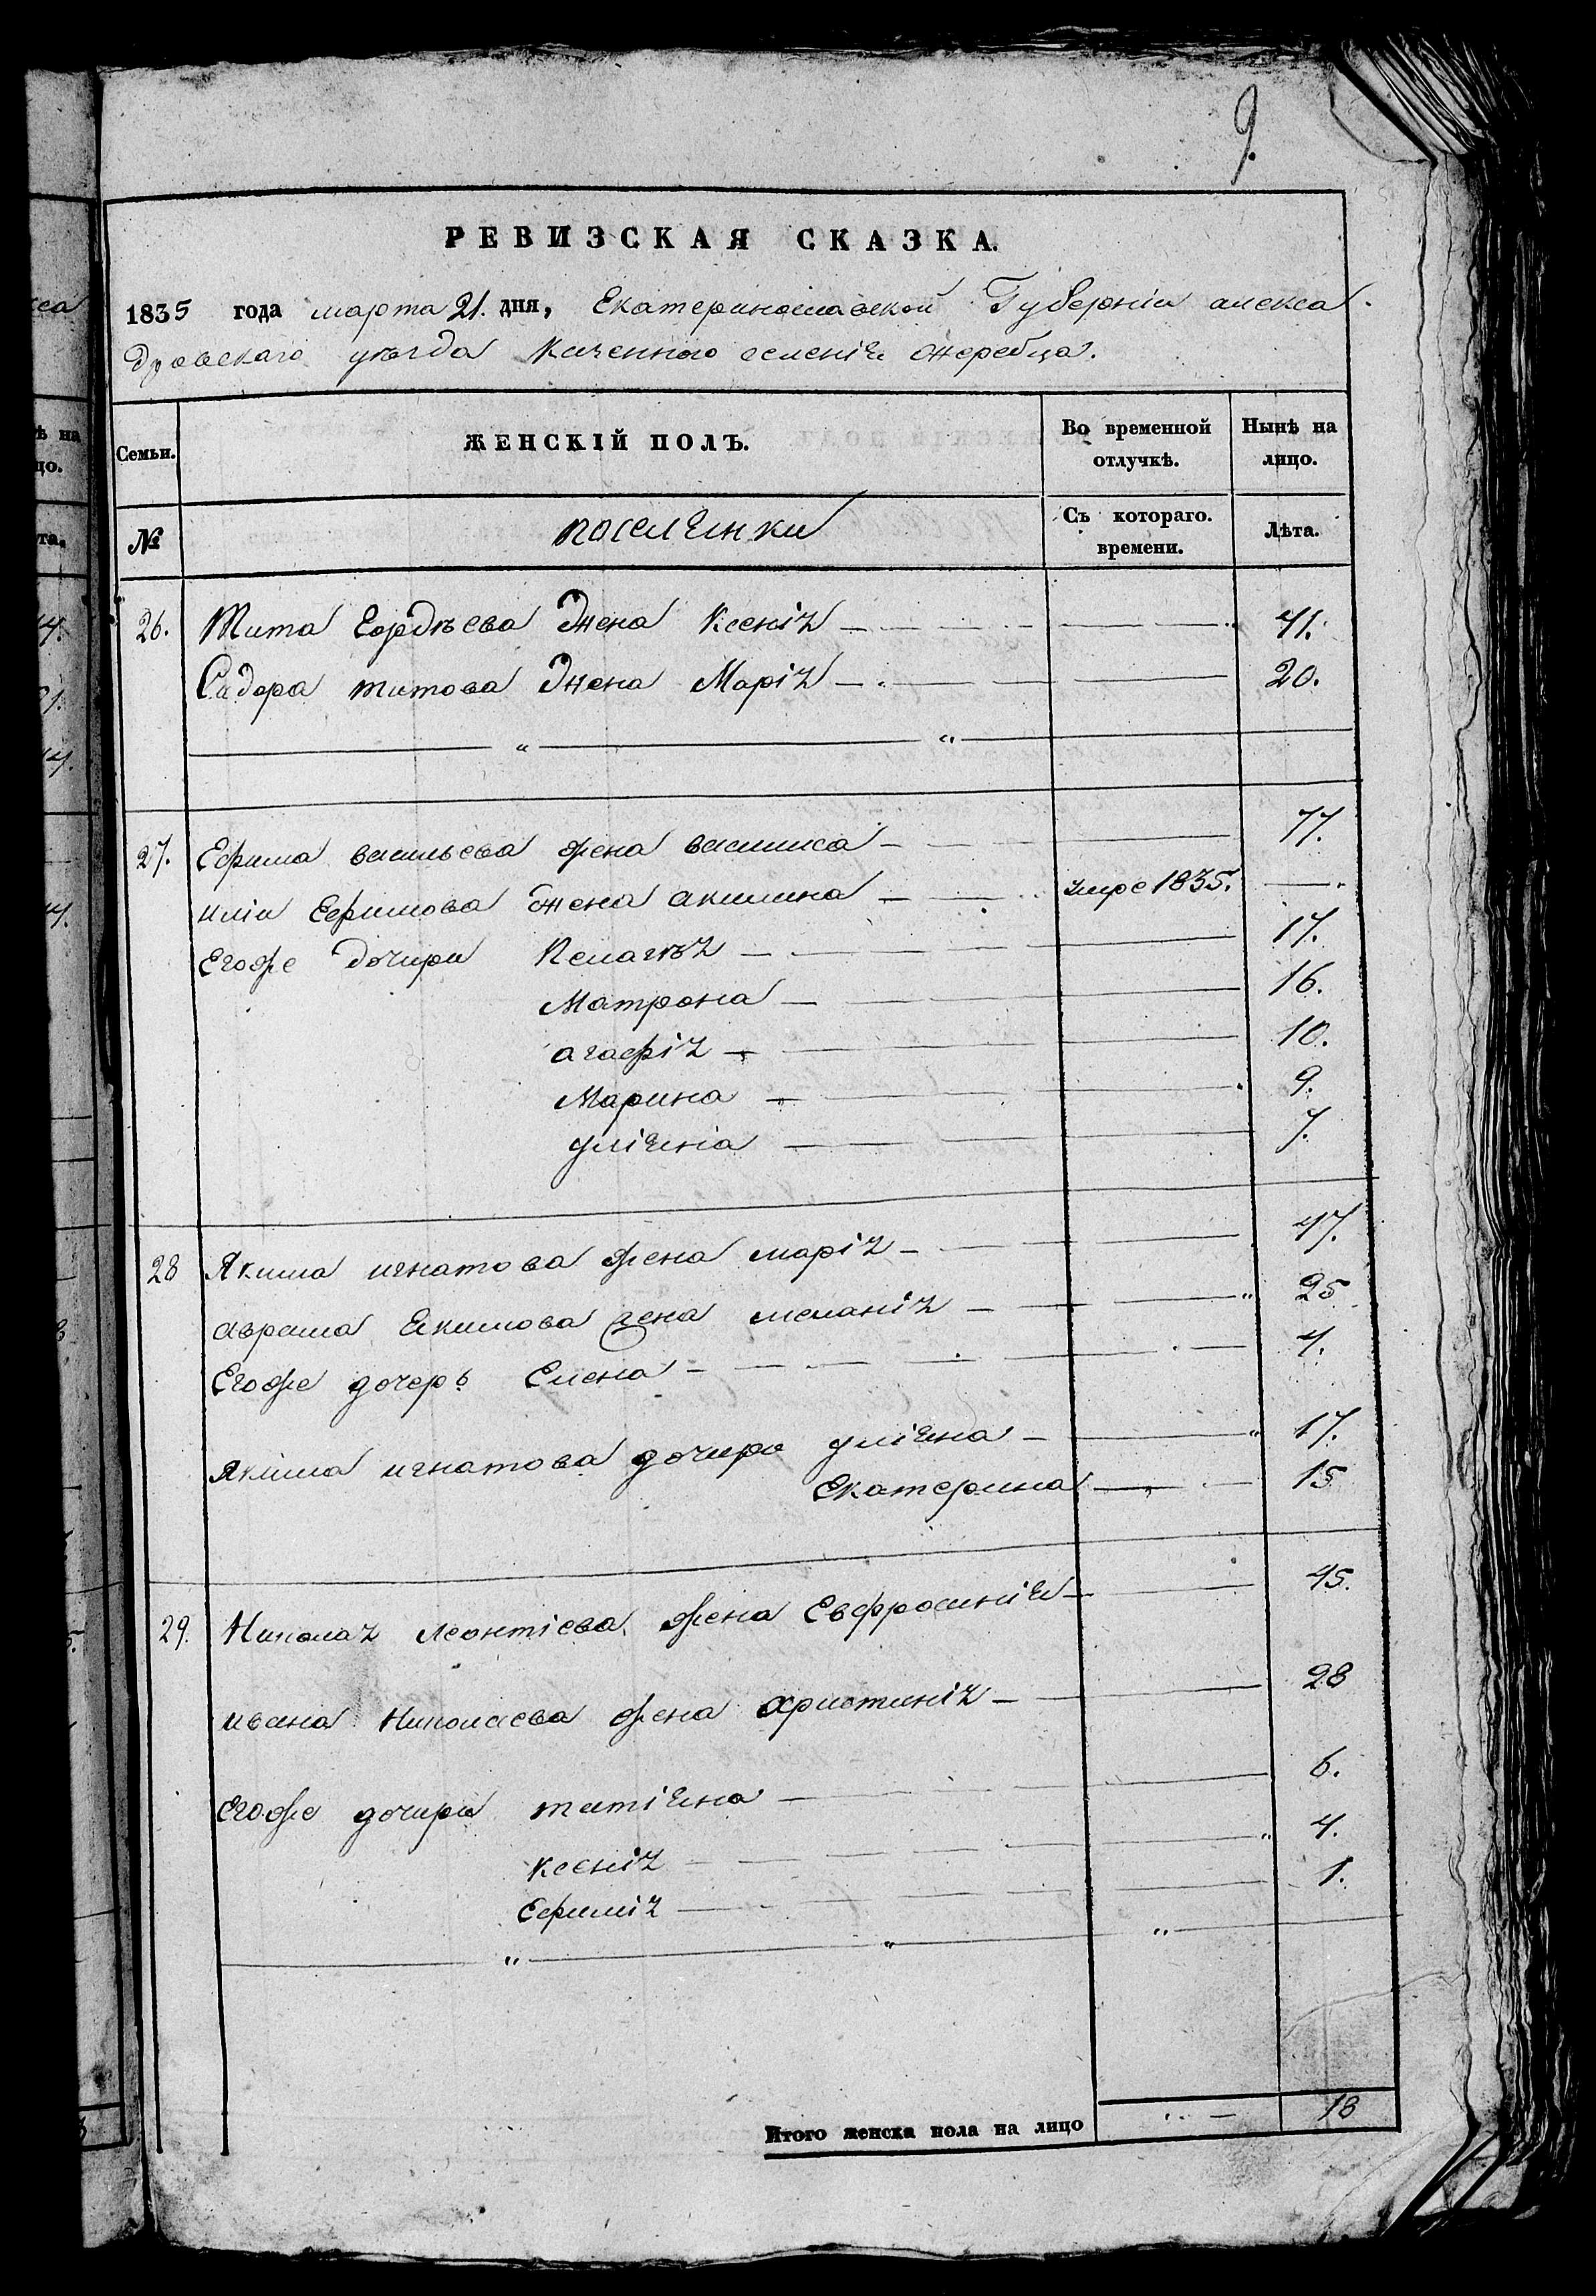 9.
РЕВИЗСКАЯ СКАЗКА.
1835 года марта 21. дня, Екатеринославской Губерніи алекса
дровскаго уѣзда Казенного селенія Жеребца.
Семьи. ЖЕНСКІЙ ПОЛЪ. Во временной отлучкѣ. Нынѣ на лицо.
№ поселянки Съ котораго. времени. Лѣта.
26. Тита Гордѣева Жена Ксенія 41.
Сидора титова Жена Марія 20.
27. Ефима васильева жена василиса 77.
илiи Ефимова жена акилина умре 1835.
Егоже дочири Пелагѣя 17.
Матрона 16.
агафія 10.
Марина 9.
уліяна 7.
28 Якима игнатова жена марія 47.
аврама Якимова жена меланія 25
Егоже дочерь Елена 4.
Якима игнатова дочири уліяна 17.
Екатерина 15
29. Николая леонтіева жена Евфросинія 45.
ивана Николаева жена христинія 28
Егоже дочири татіяна 6.
ксенія 4.
Ефимія 1.
Итого женска пола на лицо 18